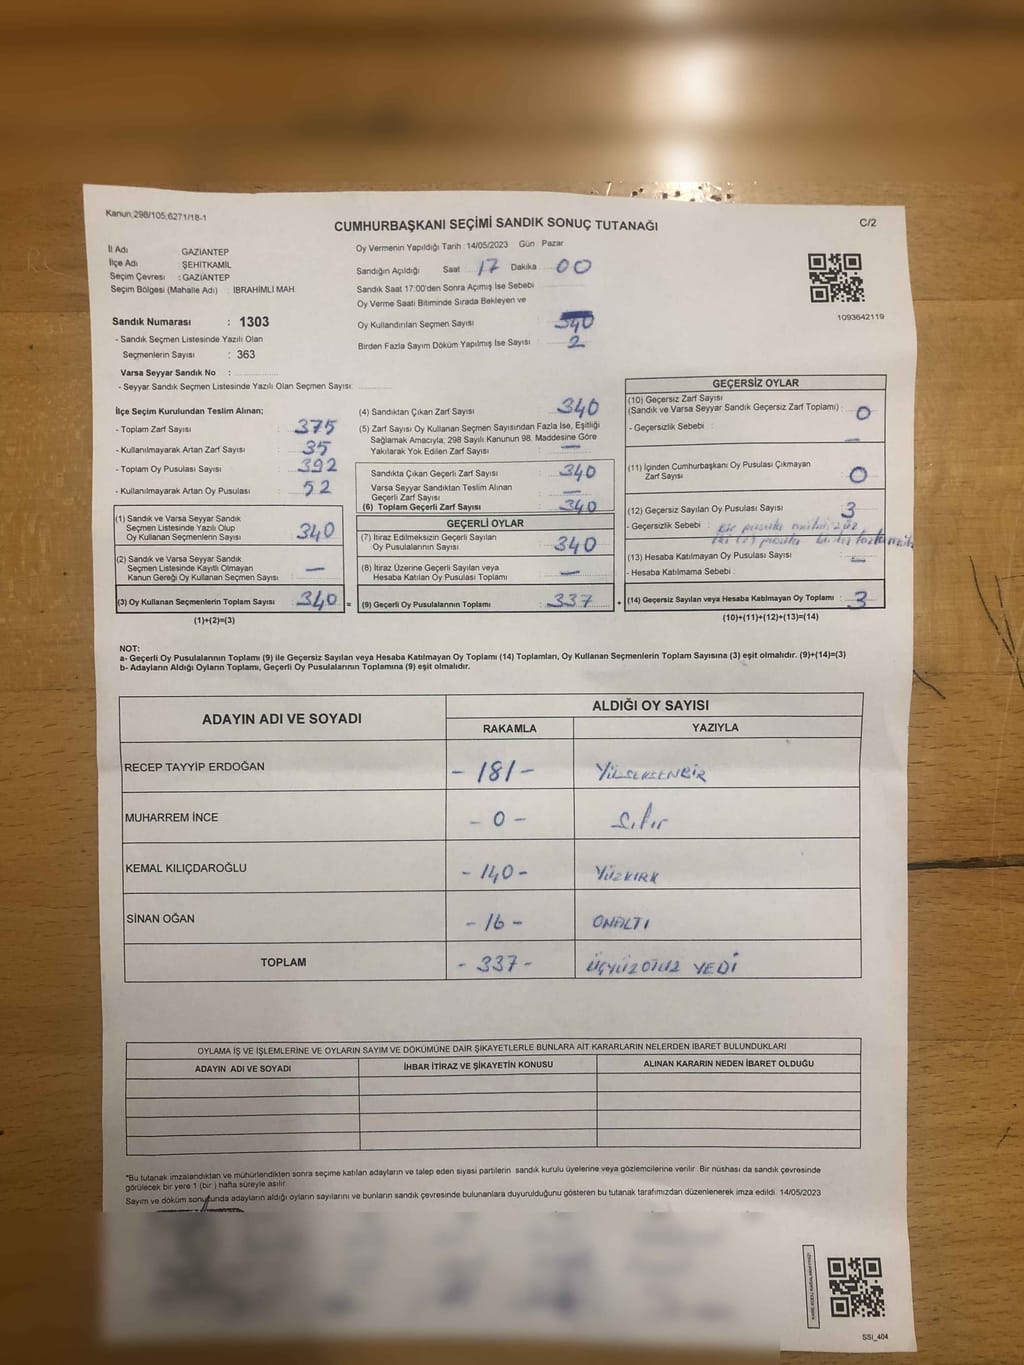 Kanun.298/105;6271/18-1
CUMHURBAŞKANI SEÇİMİ SANDIK SONUÇ TUTANAĞI
C/2
İl Adı : GAZİANTEP
İlçe Adı : ŞEHİTKAMİL
Seçim Çevresi : GAZİANTEP
Seçim Bölgesi (Mahalle Adı) : İBRAHİMLİ MAH
Sandık Numarası : 1303
- Sandık Seçmen Listesinde Yazılı Olan
Seçmenlerin Sayısı : 363
Varsa Seyyar Sandık No :
- Seyyar Sandık Seçmen Listesinde Yazılı Olan Seçmen Sayısı:
Oy Vermenin Yapıldığı Tarih : 14/05/2023 Gün : Pazar
Sandığın Açıldığı Saat 17 Dakika 00
Sandık Saat 17:00'den Sonra Açımış İse Sebebi
Oy Verme Saati Bitiminde Sırada Bekleyen ve
Oy Kullandırılan Seçmen Sayısı 340
Birden Fazla Sayım Döküm Yapılmış İse Sayısı 2
1093642119
İlçe Seçim Kurulundan Teslim Alınan;
- Toplam Zarf Sayısı : 375
- Kullanılmayarak Artan Zarf Sayısı : 35
- Toplam Oy Pusulası Sayısı : 392
- Kullanılmayarak Artan Oy Pusulası : 52
(1) Sandık ve Varsa Seyyar Sandık
Seçmen Listesinde Yazılı Olup
Oy Kullanan Seçmenlerin Sayısı : 340
(2) Sandık ve Varsa Seyyar Sandık
Seçmen Listesinde Kayıtlı Olmayan
Kanun Gereği Oy Kullanan Seçmen Sayısı : —
(3) Oy Kullanan Seçmenlerin Toplam Sayısı : 340 =
(1)+(2)=(3)
(4) Sandıktan Çıkan Zarf Sayısı : 340
(5) Zarf Sayısı Oy Kullanan Seçmen Sayısından Fazla İse, Eşitliği
Sağlamak Amacıyla; 298 Sayılı Kanunun 98. Maddesine Göre
Yakılarak Yok Edilen Zarf Sayısı : —
Sandıkta Çıkan Geçerli Zarf Sayısı : 340
Varsa Seyyar Sandıktan Teslim Alınan
Geçerli Zarf Sayısı : —
(6) Toplam Geçerli Zarf Sayısı : 340
GEÇERLİ OYLAR
(7) İtiraz Edilmeksizin Geçerli Sayılan
Oy Pusulalarının Sayısı : 340
(8) İtiraz Üzerine Geçerli Sayılan veya
Hesaba Katılan Oy Pusulası Toplamı : —
(9) Geçerli Oy Pusulalarının Toplamı : 337 +
GEÇERSİZ OYLAR
(10) Geçersiz Zarf Sayısı
(Sandık ve Varsa Seyyar Sandık Geçersiz Zarf Toplamı) : 0
- Geçersizlik Sebebi : —
(11) İçinden Cumhurbaşkanı Oy Pusulası Çıkmayan
Zarf Sayısı : 0
(12) Geçersiz Sayılan Oy Pusulası Sayısı : 3
- Geçersizlik Sebebi : Bir pusula
(13) Hesaba Katılmayan Oy Pusulası Sayısı : —
- Hesaba Katılmama Sebebi :
(14) Geçersiz Sayılan veya Hesaba Katılmayan Oy Toplamı : 3
(10)+(11)+(12)+(13)=(14)
NOT:
a- Geçerli Oy Pusulalarının Toplamı (9) ile Geçersiz Sayılan veya Hesaba Katılmayan Oy Toplamı (14) Toplamları, Oy Kullanan Seçmenlerin Toplam Sayısına (3) eşit olmalıdır. (9)+(14)=(3)
b- Adayların Aldığı Oyların Toplamı, Geçerli Oy Pusulalarının Toplamına (9) eşit olmalıdır.
ADAYIN ADI VE SOYADI
ALDIĞI OY SAYISI
RAKAMLA YAZIYLA
RECEP TAYYİP ERDOĞAN - 181 - YÜZSEKSENBİR
MUHARREM İNCE - 0 - Sıfır
KEMAL KILIÇDAROĞLU - 140 - YÜZKIRK
SİNAN OĞAN - 16 - ONALTI
TOPLAM - 337 - ÜÇYÜZOTUZ YEDİ
OYLAMA İŞ VE İŞLEMLERİNE VE OYLARIN SAYIM VE DÖKÜMÜNE DAİR ŞİKAYETLERLE BUNLARA AİT KARARLARIN NELERDEN İBARET BULUNDUKLARI
ADAYIN ADI VE SOYADI İHBAR İTİRAZ VE ŞİKAYETİN KONUSU ALINAN KARARIN NEDEN İBARET OLDUĞU
*Bu tutanak imzalandıktan ve mühürlendikten sonra seçime katılan adayların ve talep eden siyasi partilerin sandık kurulu üyelerine veya gözlemcilerine verilir. Bir nüshası da sandık çevresinde
görülecek bir yere 1 (bir ) hafta süreyle asılır.
Sayım ve döküm sonucunda adayların aldığı oyların sayılarını ve bunların sandık çevresinde bulunanlara duyurulduğunu gösteren bu tutanak tarafımızdan düzenlenerek imza edildi. 14/05/2023
SSİ_404